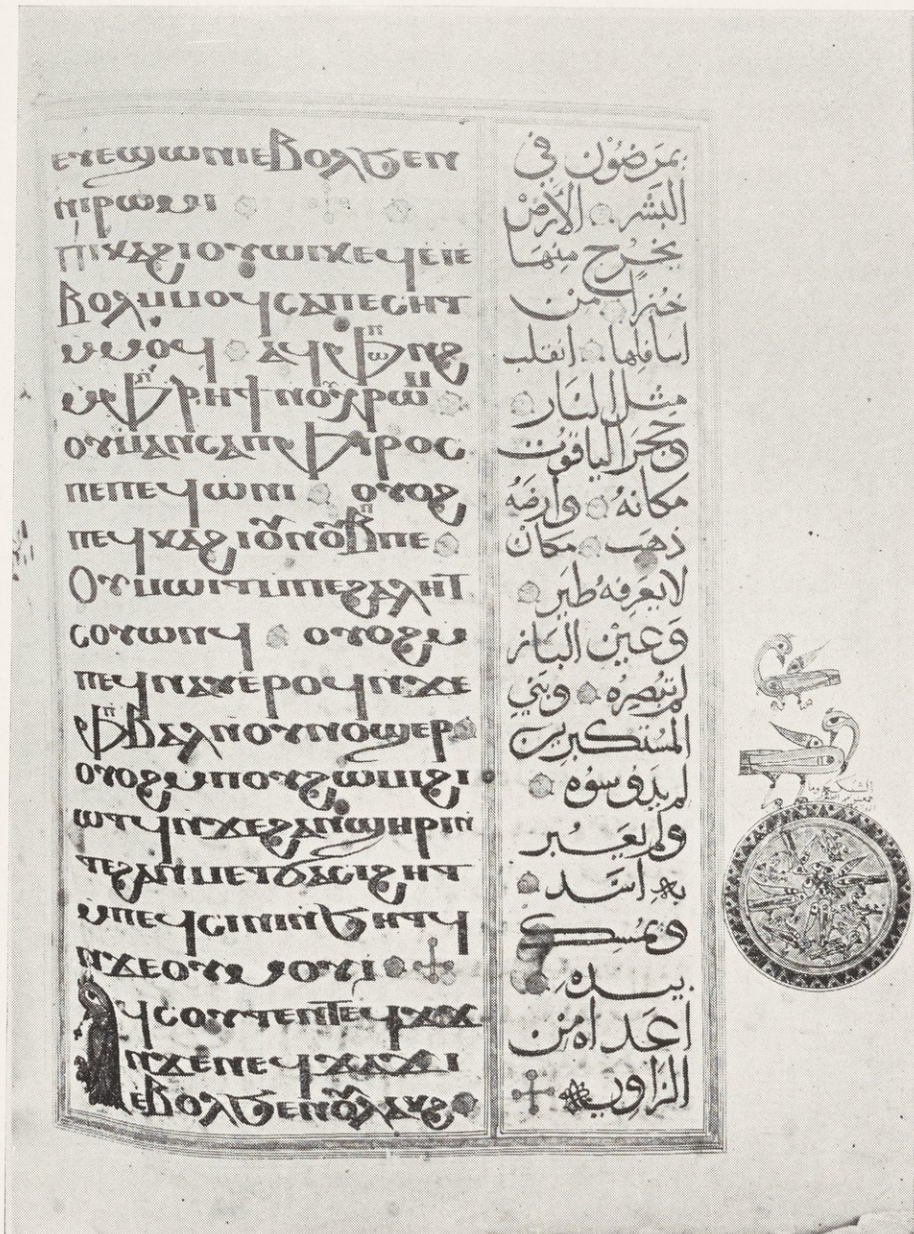 ⲉⲩⲉϣⲱⲛⲓⲉⲃⲟⲗϧⲉⲛ
ⲛⲓⲣⲱⲙⲓ
ⲡⲓⲕⲁϩⲓⲟⲩⲱⲓⲕⲉϥⲉⲓⲉ
ⲃⲟⲗⲙⲙⲟϥⲥⲁⲡⲉⲥⲏⲧ
ⲙⲙⲟϥ ⲁϥⲫⲱⲛϩ
ⲙⲫⲣⲏϯⲛⲟⲩⲭⲣⲱⲙ
ⲟⲩⲙⲁⲛⲥⲁⲡⲫⲓⲣⲟⲥ
ⲡⲉⲛⲉϥⲱⲛⲓ ⲟⲩⲟϩ
ⲡⲉϥⲕⲁϩⲓⲟⲩⲛⲟⲩⲃⲡⲉ
ⲟⲩⲙⲱⲓⲧⲙⲡⲉϩⲁⲗⲏⲧ
ⲥⲟⲩⲱⲛϥ ⲟⲩⲟϩⲙ
ⲡⲉϥⲛⲁⲩⲉⲣⲟϥⲛϫⲉ
ⲫⲃⲁⲗⲛⲟⲩⲛⲟϣⲉⲣ
ⲟⲩⲟϩⲙⲡⲟⲩϩⲱⲙⲓϩⲓ
ⲱⲧϥⲛϫⲉϩⲁⲛϣⲏⲣⲓⲛ
ⲧⲉϩⲁⲛⲡⲉⲧϭⲁⲥⲓϩⲏⲧ
ⲙⲡⲉϥⲥⲓⲛⲓⲛϧⲏⲧϥ
ⲛϫⲉⲟⲩⲙⲟⲩⲓ
ⲁϥⲥⲟⲩⲧⲉⲛⲧⲉϥϫⲓϫ
ⲛϫⲉⲛⲉϥϫⲁϫⲓ
ⲉⲃⲟⲗϧⲉⲛⲟⲩⲗⲁⲕϩ
يمرضون في
البشر الأرض
يخرج منها
خبزا من
اسافلها انقلب
مثل النار
وحجر الياقوت
مكانه وارضه
ذهب مكان
لا يعرفه طير
وعين الباز
لم تبصره وبني
المستكبرين
لم يدوسوه
ولم يعبر
به اسد
ويمسك
بيده
اعداه من
الزاوية